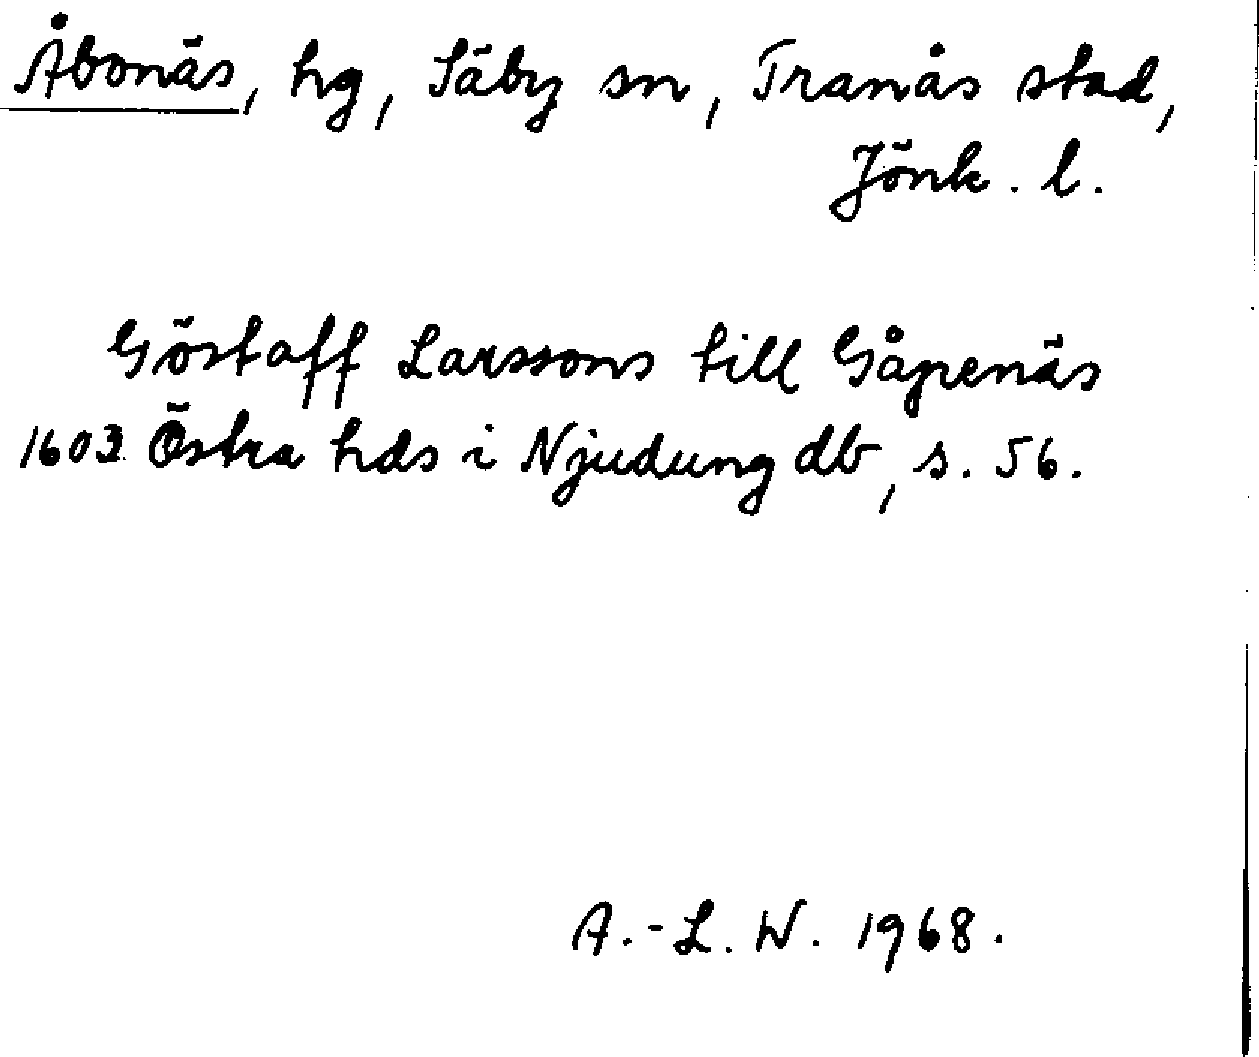 Åbonäs, hg, Säby sn, Tranås stad,
Jönk. l.
Göstaff Larssons till Gåpenäs
1603 Östra hds i Njudung db, s. 56.
A.-L. W. 1968.